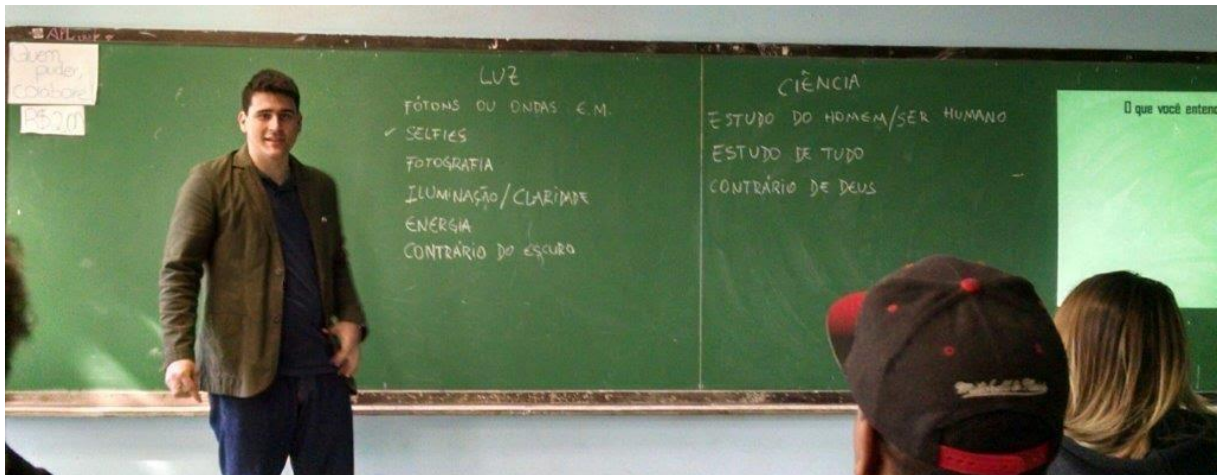 Quem
puder,
colabore!
R$2,00
LUZ
FÓTONS OU ONDAS E.M.
✓ SELFIES
FOTOGRAFIA
ILUMINAÇÃO/CLARIDADE
ENERGIA
CONTRÁRIO DO ESCURO
CIÊNCIA
ESTUDO DO HOMEM/SER HUMANO
ESTUDO DE TUDO
CONTRÁRIO DE DEUS
O que você entend